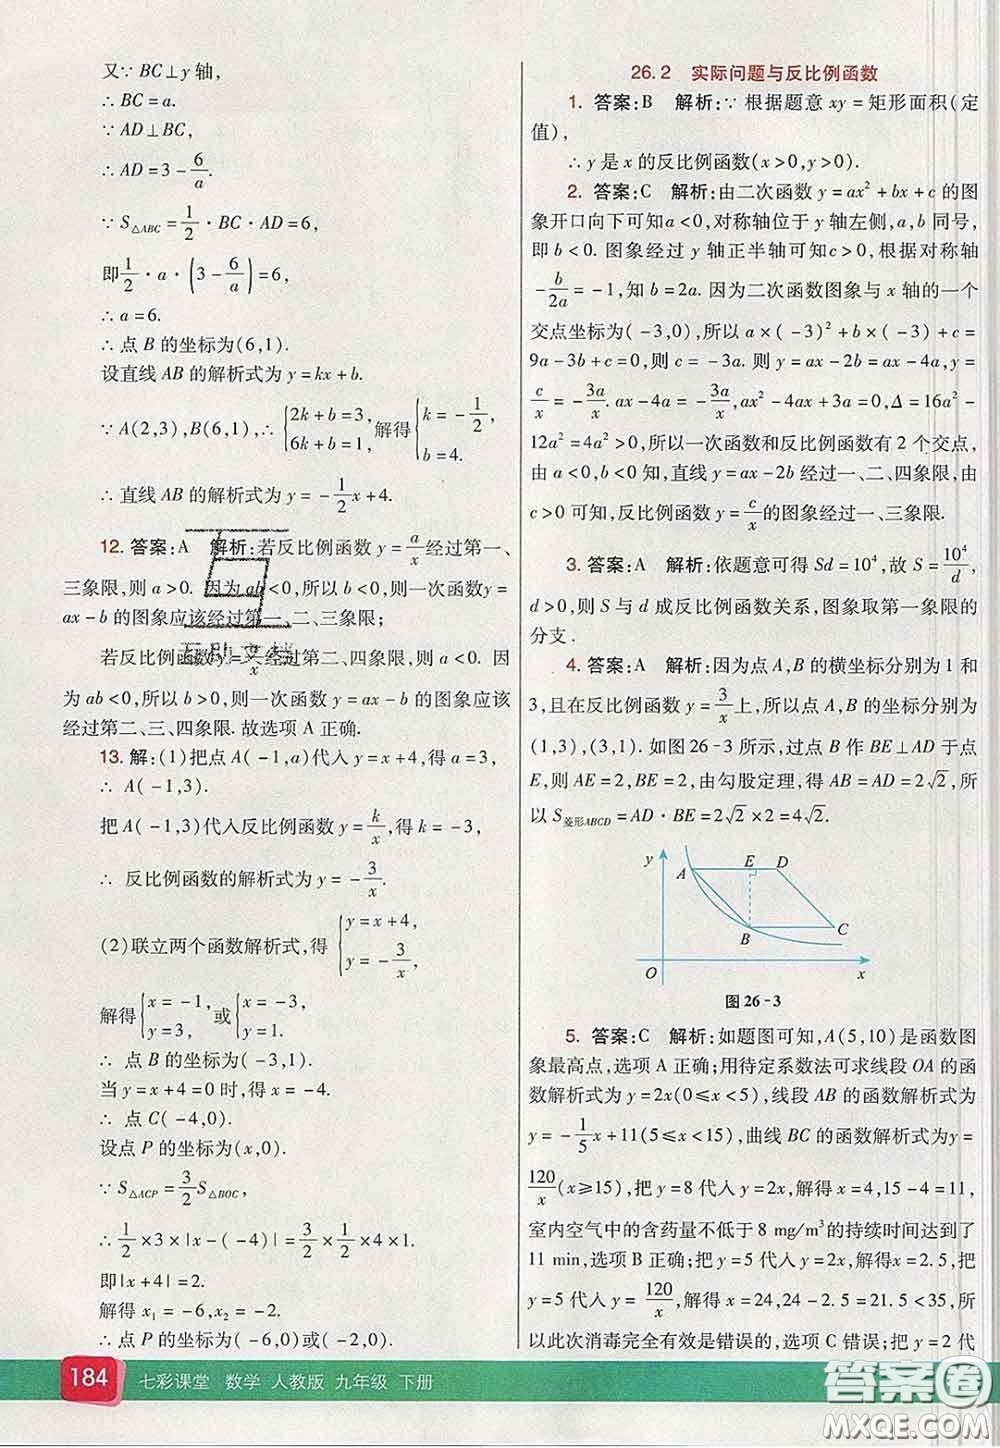 又∵ BC⊥y 轴，
∴ BC=a.
∵ AD⊥BC，
∴ AD=3-6/a.
∵ S△ABC=1/2·BC·AD=6，
即1/2·a·(3-6/a)=6，
∴ a=6.
∴ 点 B 的坐标为(6,1).
设直线 AB 的解析式为 y=kx+b.
∵ A(2,3),B(6,1),∴ {2k+b=3, 6k+b=1, 解得{k=-1/2, b=4.
∴ 直线 AB 的解析式为 y=-1/2x+4.
12. 答案:A 解析:若反比例函数 y=a/x经过第一、
三象限,则 a>0. 因为 ab<0,所以 b<0,则一次函数y=
ax-b 的图象应该经过第一、二、三象限;
若反比例函数 y=a/x经过第二、四象限,则 a<0. 因
为 ab<0,所以 b>0,则一次函数 y=ax-b 的图象应该
经过第二、三、四象限. 故选项 A 正确.
13. 解:(1)把点 A(-1,a)代入 y=x+4,得 a=3,
∴ A(-1,3).
把 A(-1,3)代入反比例函数 y=k/x,得 k=-3,
∴ 反比例函数的解析式为 y=-3/x.
(2)联立两个函数解析式,得 {y=x+4, y=-3/x.
解得{x=-1, y=3, 或{x=-3, y=1.
∴ 点 B 的坐标为(-3,1).
当 y=x+4=0 时,得 x=-4,
∴ 点 C(-4,0).
设点 P 的坐标为(x,0).
∵ S△ACP=3/2S△BOC,
∴ 1/2×3×|x-(-4)|=3/2×1/2×4×1.
即|x+4|=2.
解得 x₁=-6,x₂=-2.
∴ 点 P 的坐标为(-6,0)或(-2,0).
26.2 实际问题与反比例函数
1. 答案:B 解析:∵ 根据题意 xy=矩形面积(定
值),
∴ y 是 x 的反比例函数(x>0,y>0).
2. 答案:C 解析:由二次函数 y=ax²+bx+c 的图
象开口向下可知 a<0,对称轴位于 y 轴左侧,a,b 同号,
即 b<0. 图象经过 y 轴正半轴可知 c>0,根据对称轴
-b/2a=-1,知 b=2a. 因为二次函数图象与 x 轴的一个
交点坐标为(-3,0),所以 a×(-3)²+b×(-3)+c=
9a-3b+c=0,则 c=-3a. 则 y=ax-2b=ax-4a,y=
c/x=-3a/x. ax-4a=-3a/x,ax²-4ax+3a=0,Δ=16a²-
12a²=4a²>0,所以一次函数和反比例函数有 2 个交点,
由 a<0,b<0 知,直线 y=ax-2b 经过一、二、四象限,由
c>0 可知,反比例函数 y=c/x的图象经过一、三象限.
3. 答案:A 解析:依题意可得 Sd=10⁴,故 S=10⁴/d,
d>0,所以 S 与 d 成反比例函数关系,图象取第一象限的
分支.
4. 答案:A 解析:因为点 A,B 的横坐标分别为 1 和
3,且在反比例函数 y=3/x上,所以点 A,B 的坐标分别为
(1,3),(3,1). 如图 26-3 所示,过点 B 作 BE⊥AD 于点
E,则 AE=2,BE=2,由勾股定理,得 AB=AD=2√2,所
以 S菱形ABCD=AD·BE=2√2×2=4√2.
y
E D
A
B C
O x
图 26-3
5. 答案:C 解析:如题图可知,A(5,10)是函数图
象最高点,选项 A 正确;用待定系数法可求线段 OA 的函
数解析式为 y=2x(0≤x<5),线段 AB 的函数解析式为
y=-1/5x+11(5≤x<15),曲线 BC 的函数解析式为y=
120/x(x≥15),把 y=8 代入 y=2x,解得 x=4,15-4=11,
室内空气中的含药量不低于 8 mg/m³的持续时间达到了
11 min,选项 B 正确;把 y=5 代入 y=2x,解得 x=2.5,把
y=5 代入 y=120/x,解得 x=24,24-2.5=21.5<35,所
以此次消毒完全有效是错误的,选项 C 错误;把 y=2 代
184 七彩课堂 数学 人教版 九年级 下册
答案圈
MXQE.COM